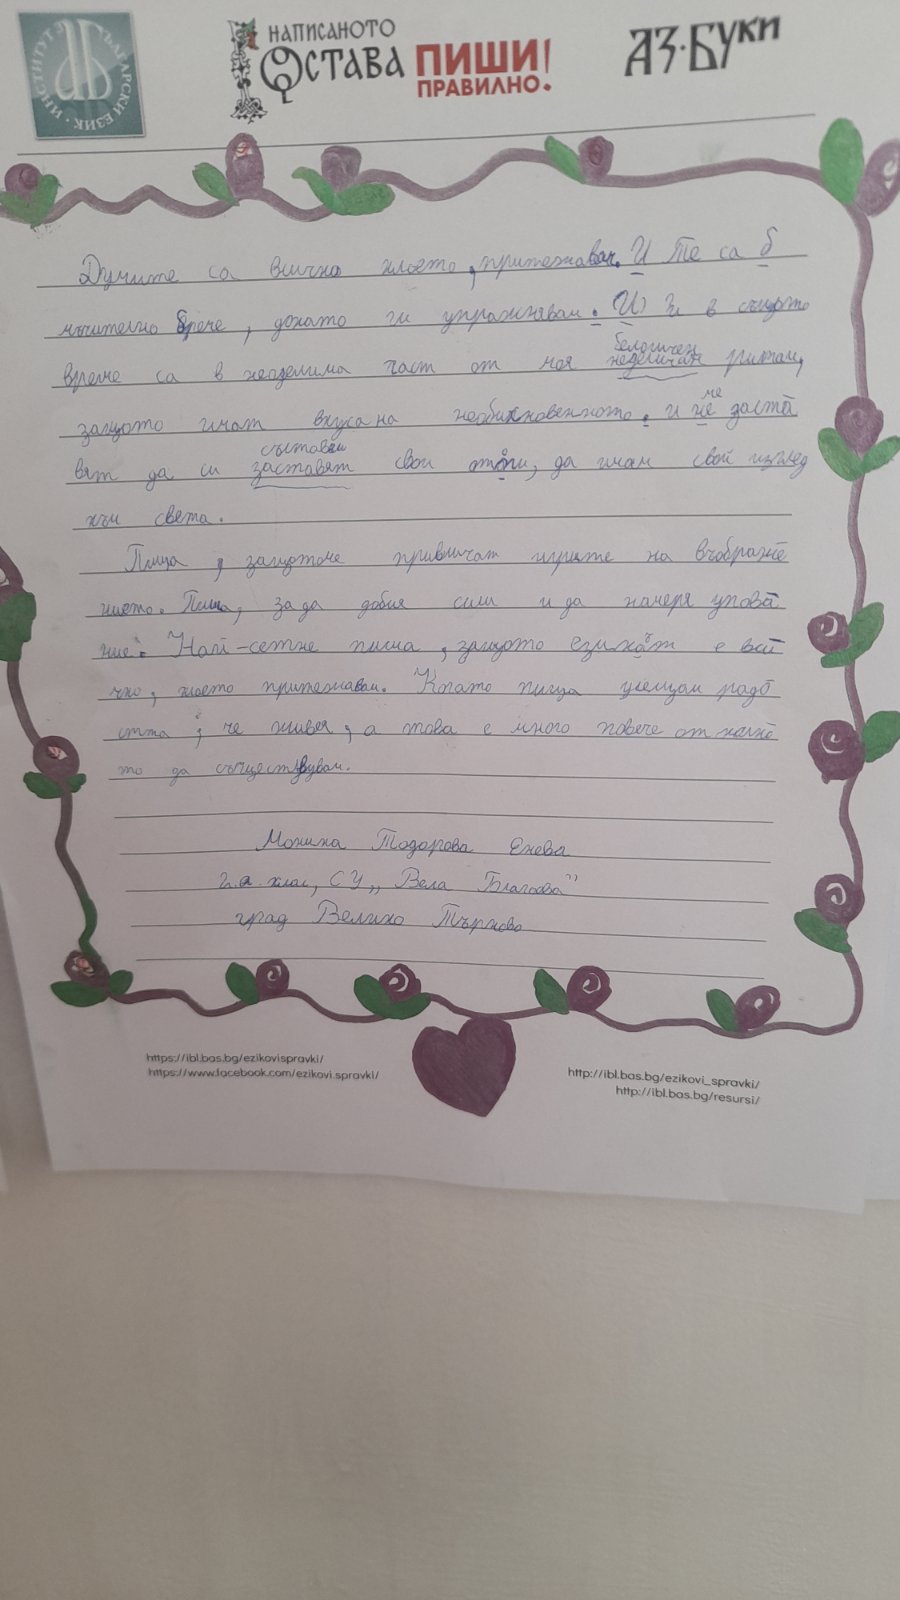 ИНСТИТУТ ЗА БЪЛГАРСКИ ЕЗИК
НАПИСАНОТО
ОСТАВА
ПИШИ
ПРАВИЛНО!
АЗ·БУКИ
Думите са всичко което, притежавам. И Те са б
мъчително бреме, докато ги упражнявам. И в същото
време са в неделима част от моя ритъм,
защото имат вкуса на необикновенното. и ме заста
вят да си съставям свои опори, да имам свой изглед
към света.
Пиша, защото ме привличат игрите на въображе
нието. Пиша, за да добия сили и да намеря упова
ние. Най-сетне пиша, защото езикът е вси
чко, което притежавам. Когато пиша усещам радо
стта, че живея, а това е много повече от колко
то да съществувам.
Моника Тодорова Енева
клас, СУ „Вела Благоева"
град Велико Търново
https://ibl.bas.bg/ezikovispravki/
https://www.facebook.com/ezikovi.spravki/
http://ibl.bas.bg/ezikovi_spravki/
http://ibl.bas.bg/resursi/